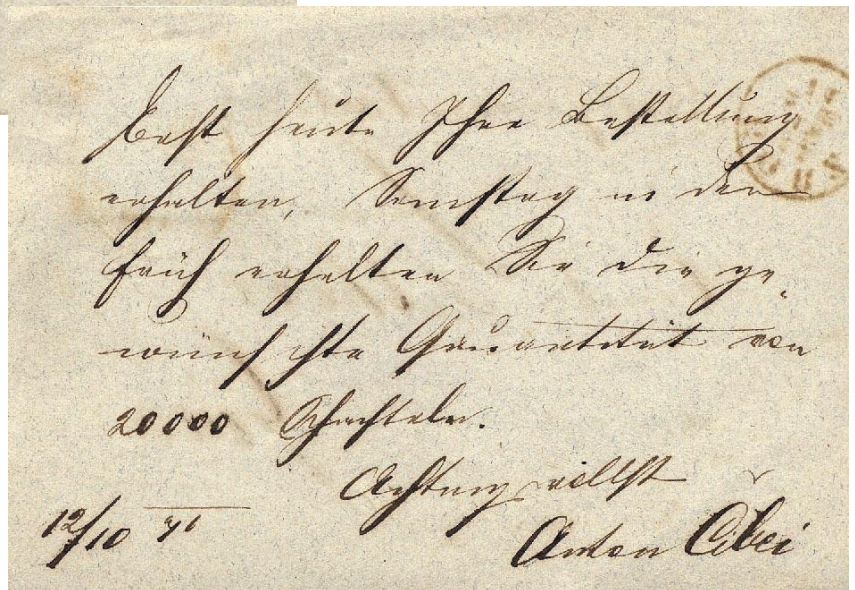 Erst heute Ihre Bestellung
erhalten, Samstag in der
früh erhalten Sie die ge-
wünschte Quantität von
20000 Schachteln.
Achtungsvollst
12/10 71
Anton Cibei